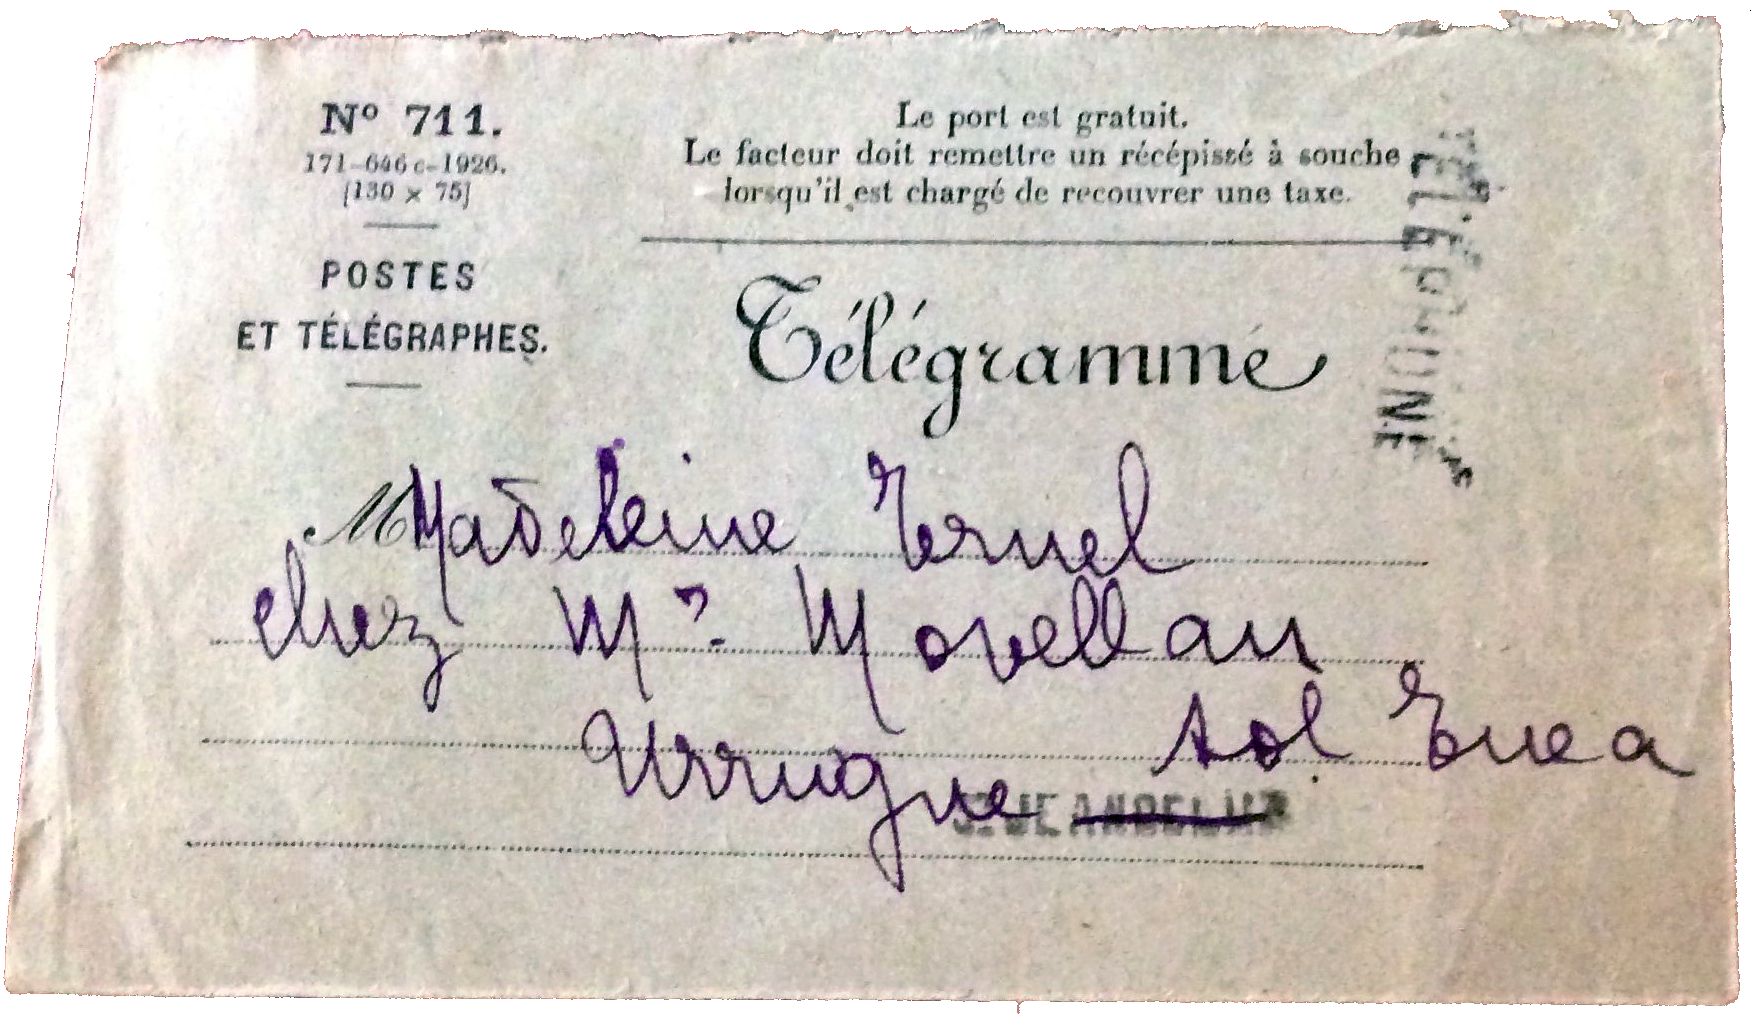 N° 711.
171-646 c-1926.
[130 × 75]
POSTES
ET TÉLÉGRAPHES.
Le port est gratuit.
Le facteur doit remettre un récépissé à souche
lorsqu'il est chargé de recouvrer une taxe.
TÉLÉPHONE
Télégramme
M Madeleine Teruel
chez Mr Morellan
Urrugne Sol Enea
ST JEAN DE LUZ